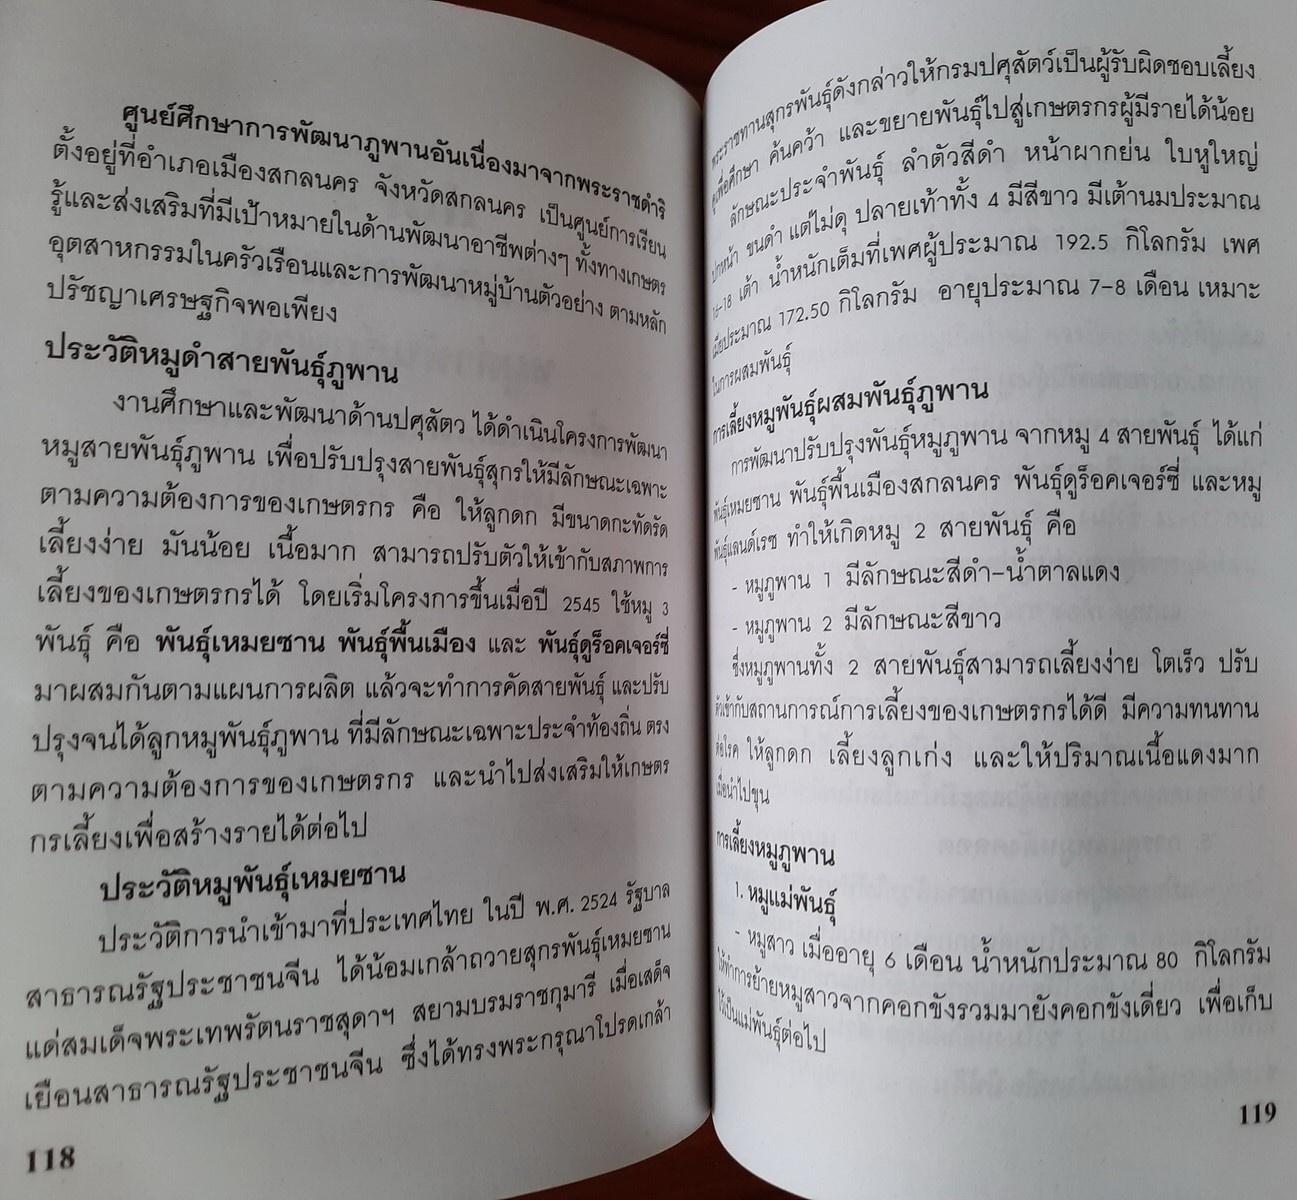 ศูนย์ศึกษาการพัฒนาภูพานอันเนื่องมาจากพระราชดำริ
ตั้งอยู่ที่อำเภอเมืองสกลนคร จังหวัดสกลนคร เป็นศูนย์การเรียน
รู้และส่งเสริมที่มีเป้าหมายในด้านพัฒนาอาชีพต่างๆ ทั้งทางเกษตร
อุตสาหกรรมในครัวเรือนและการพัฒนาหมู่บ้านตัวอย่าง ตามหลัก
ปรัชญาเศรษฐกิจพอเพียง
ประวัติหมูดำสายพันธุ์ภูพาน
งานศึกษาและพัฒนาด้านปศุสัตว ได้ดำเนินโครงการพัฒนา
หมูสายพันธุ์ภูพาน เพื่อปรับปรุงสายพันธุ์สุกรให้มีลักษณะเฉพาะ
ตามความต้องการของเกษตรกร คือ ให้ลูกดก มีขนาดกะทัดรัด
เลี้ยงง่าย มันน้อย เนื้อมาก สามารถปรับตัวให้เข้ากับสภาพการ
เลี้ยงของเกษตรกรได้ โดยเริ่มโครงการขึ้นเมื่อปี 2545 ใช้หมู 3
พันธุ์ คือ พันธุ์เหมยซาน พันธุ์พื้นเมือง และ พันธุ์ดูร็อคเจอร์ซี่
มาผสมกันตามแผนการผลิต แล้วจะทำการคัดสายพันธุ์ และปรับ
ปรุงจนได้ลูกหมูพันธุ์ภูพาน ที่มีลักษณะเฉพาะประจำท้องถิ่น ตรง
ตามความต้องการของเกษตรกร และนำไปส่งเสริมให้เกษตร
กรเลี้ยงเพื่อสร้างรายได้ต่อไป
ประวัติหมูพันธุ์เหมยซาน
ประวัติการนำเข้ามาที่ประเทศไทย ในปี พ.ศ. 2524 รัฐบาล
สาธารณรัฐประชาชนจีน ได้น้อมเกล้าถวายสุกรพันธุ์เหมยซาน
แด่สมเด็จพระเทพรัตนราชสุดาฯ สยามบรมราชกุมารี เมื่อเสด็จ
เยือนสาธารณรัฐประชาชนจีน ซึ่งได้ทรงพระกรุณาโปรดเกล้า
118
พระราชทานสุกรพันธุ์ดังกล่าวให้กรมปศุสัตว์เป็นผู้รับผิดชอบเลี้ยง
ดูเพื่อศึกษา ค้นคว้า และขยายพันธุ์ไปสู่เกษตรกรผู้มีรายได้น้อย
ลักษณะประจำพันธุ์ ลำตัวสีดำ หน้าผากย่น ใบหูใหญ่
ปกหน้า ขนดำ แต่ไม่ดุ ปลายเท้าทั้ง 4 มีสีขาว มีเต้านมประมาณ
16-18 เต้า น้ำหนักเต็มที่เพศผู้ประมาณ 192.5 กิโลกรัม เพศ
เมียประมาณ 172.50 กิโลกรัม อายุประมาณ 7-8 เดือน เหมาะ
ในการผสมพันธุ์
การเลี้ยงหมูพันธุ์ผสมพันธุ์ภูพาน
การพัฒนาปรับปรุงพันธุ์หมูภูพาน จากหมู 4 สายพันธุ์ ได้แก่
พันธุ์เหมยซาน พันธุ์พื้นเมืองสกลนคร พันธุ์ดูร็อคเจอร์ซี่ และหมู
พันธุ์แลนด์เรซ ทำให้เกิดหมู 2 สายพันธุ์ คือ
- หมูภูพาน 1 มีลักษณะสีดำ-น้ำตาลแดง
- หมูภูพาน 2 มีลักษณะสีขาว
ซึ่งหมูภูพานทั้ง 2 สายพันธุ์สามารถเลี้ยงง่าย โตเร็ว ปรับ
ตัวเข้ากับสถานการณ์การเลี้ยงของเกษตรกรได้ดี มีความทนทาน
ต่อโรค ให้ลูกดก เลี้ยงลูกเก่ง และให้ปริมาณเนื้อแดงมาก
เมื่อนำไปขุน
การเลี้ยงหมูภูพาน
1. หมูแม่พันธุ์
- หมูสาว เมื่ออายุ 6 เดือน น้ำหนักประมาณ 80 กิโลกรัม
ให้ทำการย้ายหมูสาวจากคอกขังรวมมายังคอกขังเดี่ยว เพื่อเก็บ
ไว้เป็นแม่พันธุ์ต่อไป
119